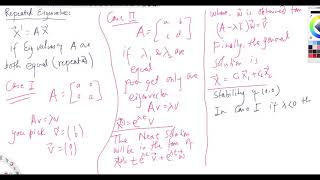 Repeated Eigenvalue:
Ẋ = A X
if Eigvalues of A are
both equal (repeated)
Case I
A = [a 0
0 a]
Av = λv
you pick ũ = (1 0)
ṽ = (0 1)
Case II
A = [a b
c d]
if λ₁ & λ₂ are
equal
but get only one
eigenvector
Av = λv
X = e^λt v
The Next Solution
will be in the form of
X = t e^λt v + e^λt w
where, w is obtained from
(A-λI)w = v
Finally, the general
Solution is
X = C₁x₁ + C₂x₂
Stability of (0,0)
In Case I if λ<0 th